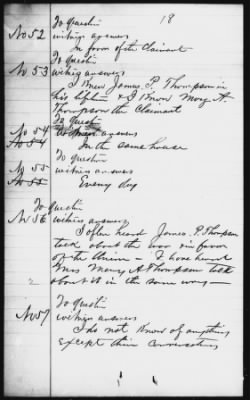 18
To Question
No 52 witness answers
In favor of the Claimant
To Question
No 53 witness answers
I Knew James. P. Thompson in
his lifetime & I Know Mary A.
Thompson the Claimant
To Question
No 54 witness answers
No 54
In the same house
To Question
No 55 witness answers
No 55
Every day
To Question
No 56 witness answers
I often heard James. P. Thompson
talk about the war in favor
of the Union - I have heard
Mrs Mary A Thompson talk
about it in the same way -
2
To Question
No 57 witness answers
I do not Know of anything
except their conversation